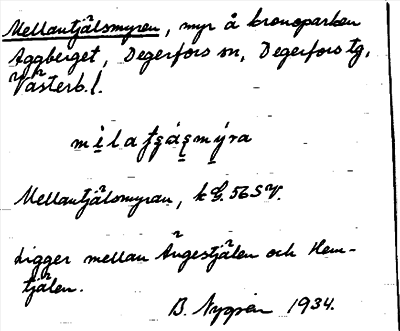 Mellantjälsmyren, myr å kronoparken
Aggberget, Degerfors sn, Degerfors tg,
Västerb. l.
Mellantjälsmyran, k G. 56 S V.
Ligger mellan Ångestjälen och Hem-
tjälen.
B. Nygren 1934.